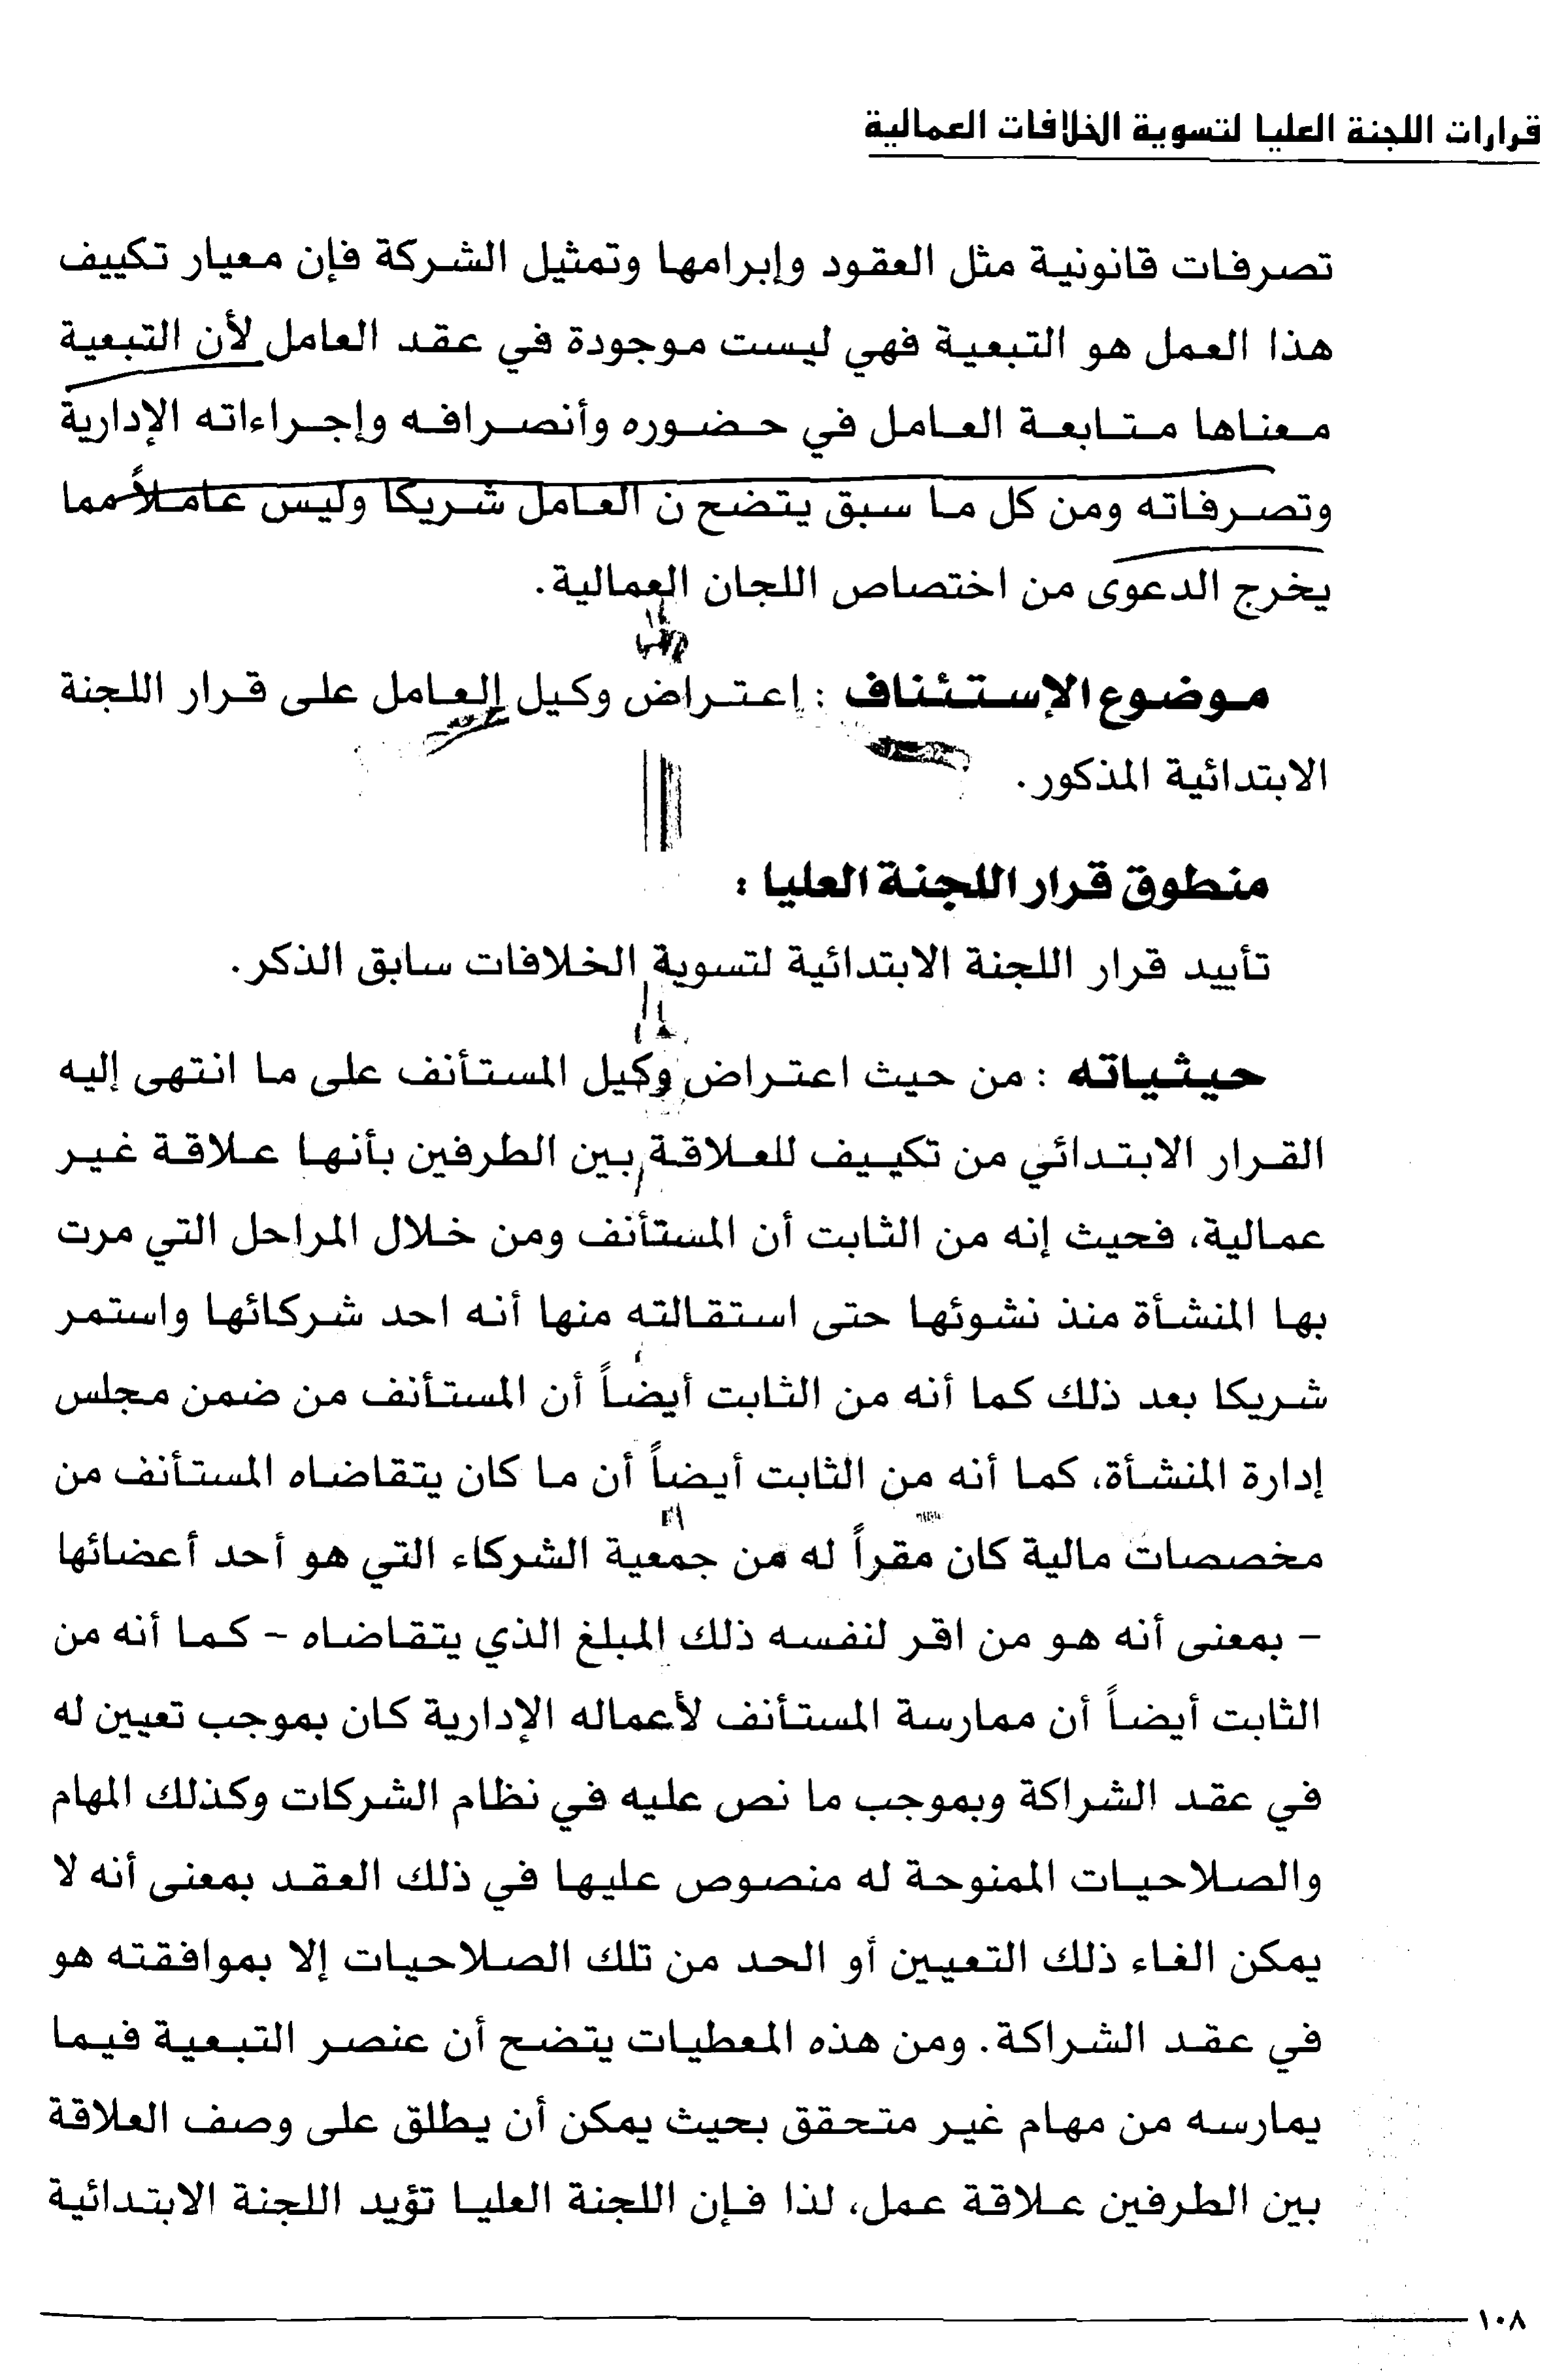 قرارات اللجنة العليا لتسوية الخلافات العمالية
تصرفات قانونية مثل العقود وإبرامها وتمثيل الشركة فإن معيار تكييف
هذا العمل هو التبعية فهي ليست موجودة في عقد العامل لأن التبعية
معناها متابعة العامل في حضوره وأنصرافه وإجراءاته الإدارية
وتصرفاته ومن كل ما سبق يتضح ن العامل شريكا وليس عاملاً مما
يخرج الدعوى من اختصاص اللجان العمالية.
موضوع الإستئناف : إعتراض وكيل العامل على قرار اللجنة
الابتدائية المذكور.
منطوق قرار اللجنة العليا :
تأييد قرار اللجنة الابتدائية لتسوية الخلافات سابق الذكر.
حيثياته : من حيث اعتراض وكيل المستأنف على ما انتهى إليه
القرار الابتدائي من تكييف للعلاقة بين الطرفين بأنها علاقة غير
عمالية، فحيث إنه من الثابت أن المستأنف ومن خلال المراحل التي مرت
بها المنشأة منذ نشوئها حتى استقالته منها أنه احد شركائها واستمر
شريكا بعد ذلك كما أنه من الثابت أيضاً أن المستأنف من ضمن مجلس
إدارة المنشأة، كما أنه من الثابت أيضاً أن ما كان يتقاضاه المستأنف من
مخصصات مالية كان مقراً له من جمعية الشركاء التي هو أحد أعضائها
- بمعنى أنه هو من اقر لنفسه ذلك المبلغ الذي يتقاضاه - كما أنه من
الثابت أيضاً أن ممارسة المستأنف لأعماله الإدارية كان بموجب تعيين له
في عقد الشراكة وبموجب ما نص عليه في نظام الشركات وكذلك المهام
والصلاحيات الممنوحة له منصوص عليها في ذلك العقد بمعنى أنه لا
يمكن الغاء ذلك التعيين أو الحد من تلك الصلاحيات إلا بموافقته هو
في عقد الشراكة. ومن هذه المعطيات يتضح أن عنصر التبعية فيما
يمارسه من مهام غير متحقق بحيث يمكن أن يطلق على وصف العلاقة
بين الطرفين علاقة عمل، لذا فإن اللجنة العليا تؤيد اللجنة الابتدائية
١٠٨